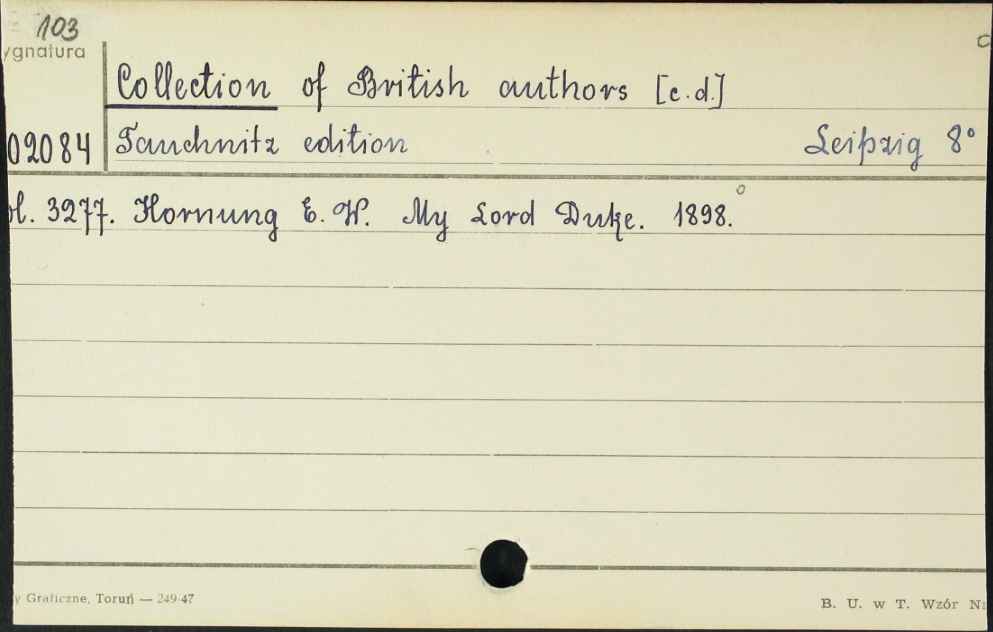 103
ygnatura
Collection of British authors [c.d.]
02084 Tauchnitz edition Leipzig 8°
ol. 3277. Hornung E. W. My Lord Duke. 1898.°
y Graficzne, Toruń — 249/47 B. U. w T. Wzór Nr